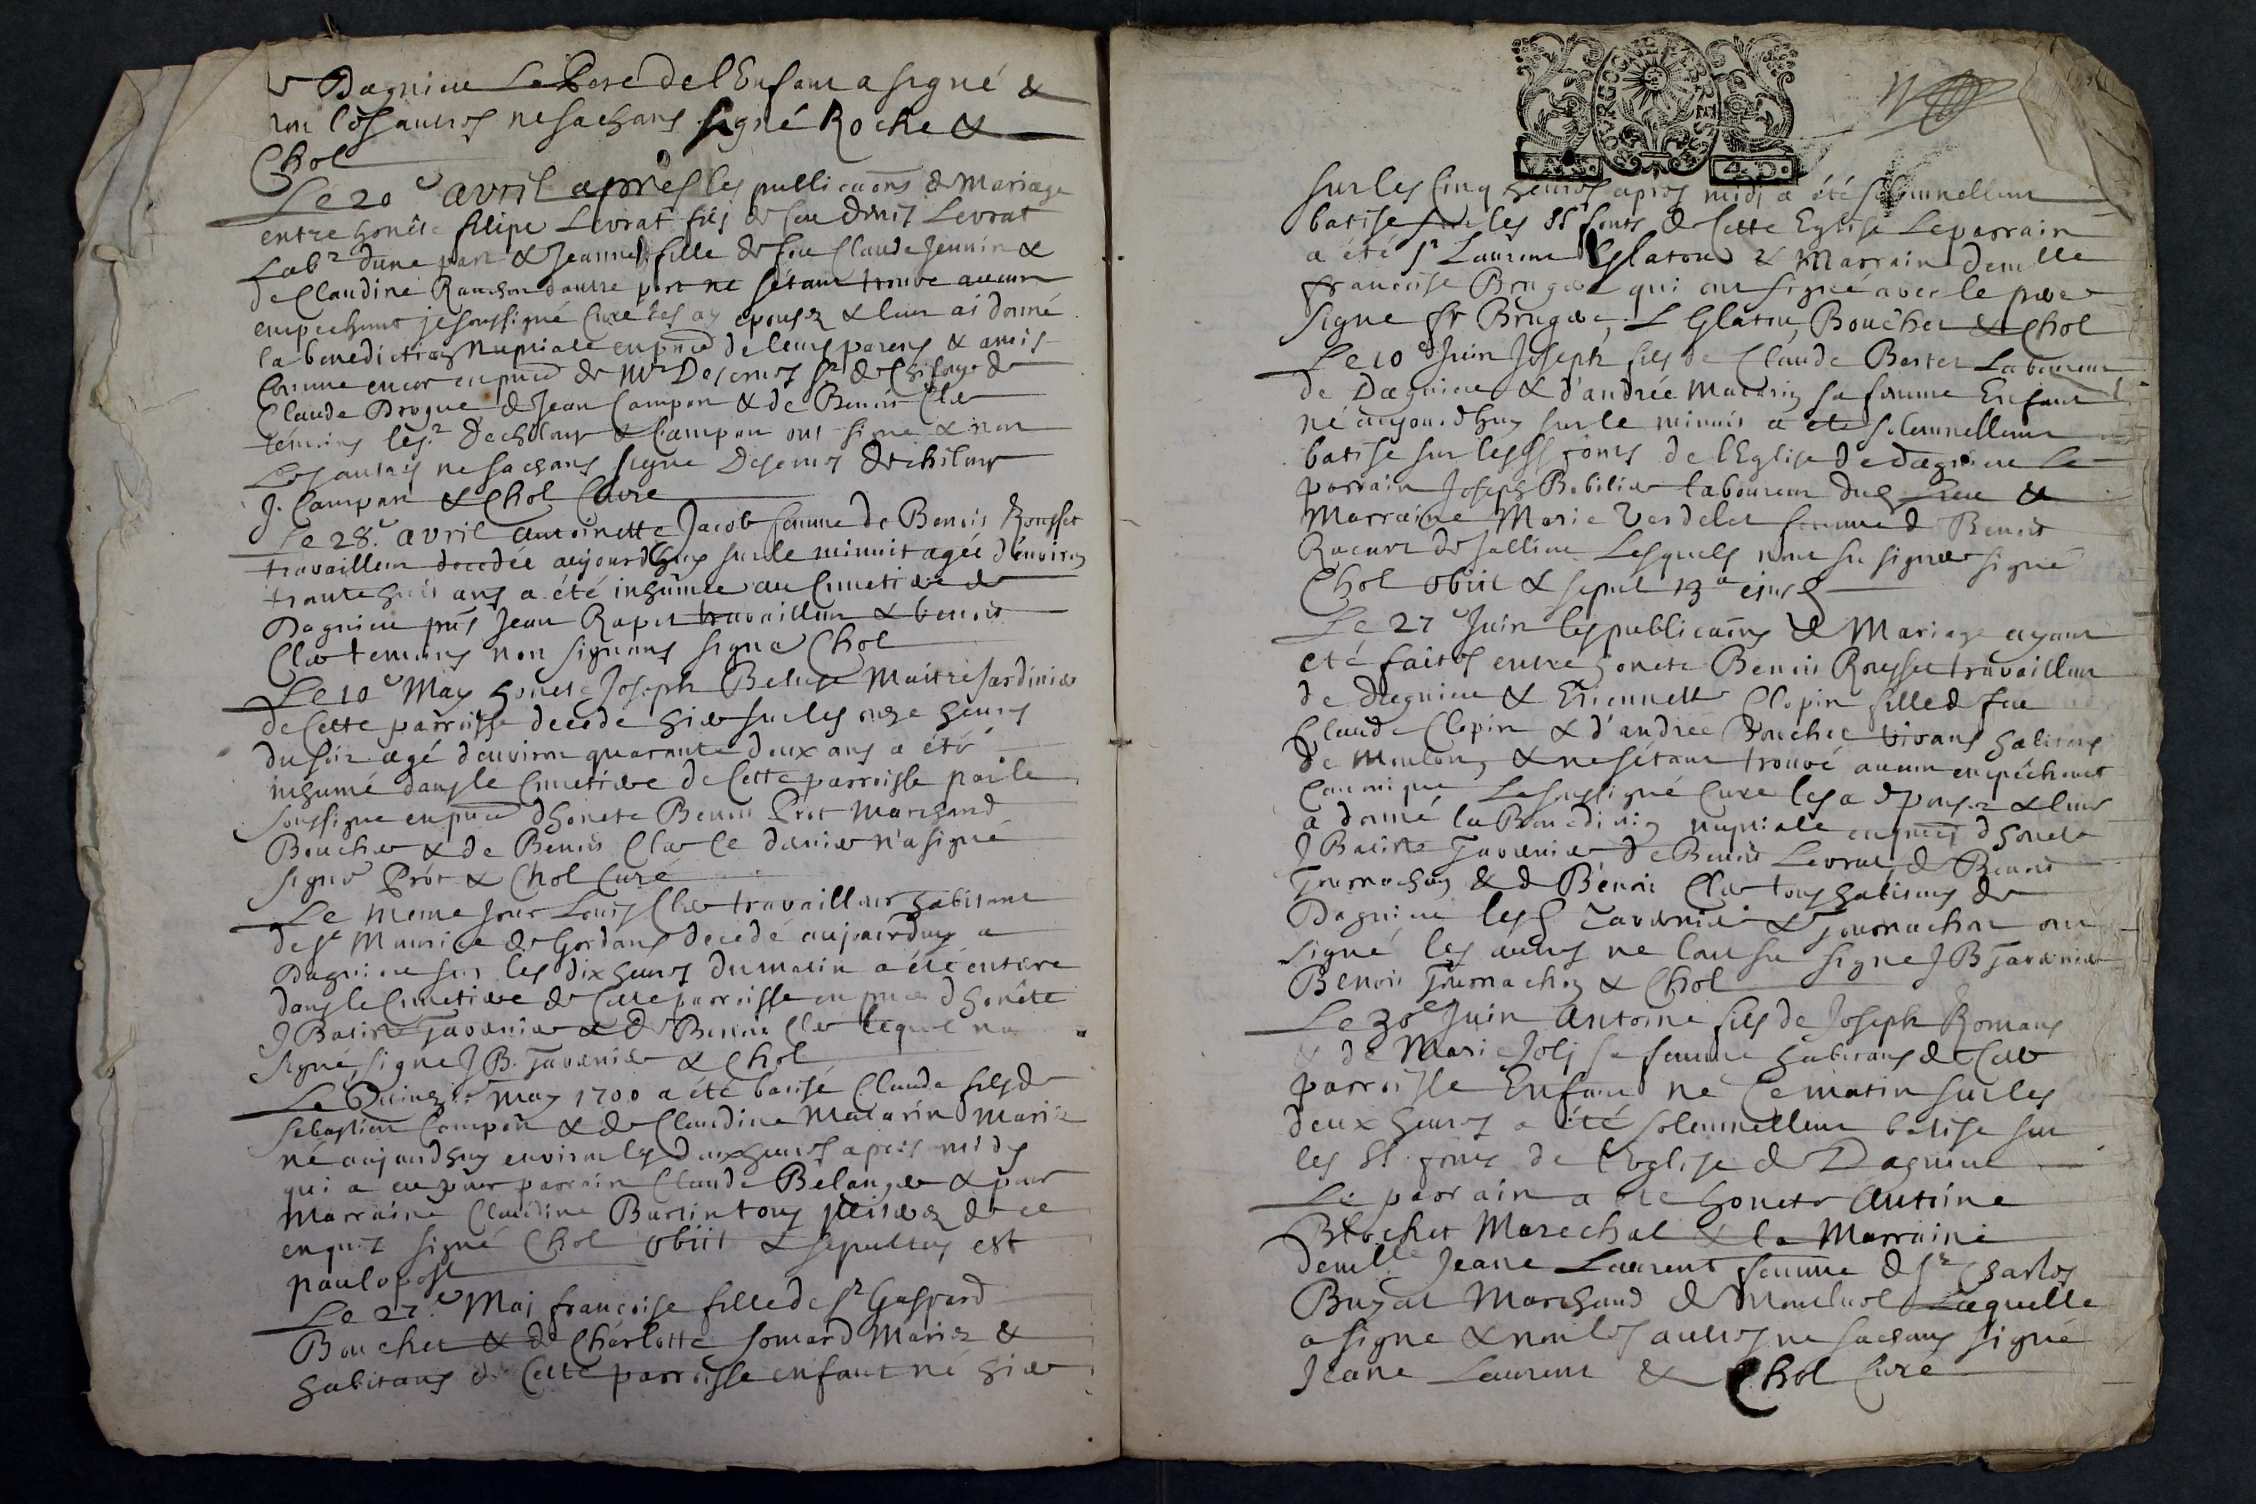 Dagnieu Le Pere de l'Enfant a signé &
non les autres ne sachans signé Roche &
Chol
Le 20e avril apres les publicaons de Mariage
entre honête filipe Livrat fils de feu denis Levrat
Labr dune part & Jeanne fille de feu Claude Jeunin &
de Claudine Rauchon dautre part ne sétant trouvé aucun
empechement je soussigné Curé les ay epousez & leur ai donné
la benediction Nuptiale en pnce de leurs parens & amis
Comme encor en pnce de Mr
Claude Drogue de Jean Campan & de Benoit Cler
temoins les & Campan ont signé & non
Les autres ne sachans signé
J. Campan & Chol Curé
Le 28e avril Antoinette Jacob femme de Benois Rousset
travailleur decedée aujourdhuy sur le minuit agée d'environ
trante huit ans a été inhumée au Cimetiere de
Dagnieu pns Jean Rapet travailleur & benoit
Cler temoins non signans signé Chol
Le 10e May honete Joseph Beluze Maitre Jardinier
de Cette parroisse decede hier sur les onze heures
du soir agé denviron quarante deux ans a été
inhumé dans le Cimetiere de Cette parroisse par le
soussigne en pnce dhonete Benoit Prot Marchand
Boucher & de Benois Cler Ce dernier n'a signé
signé Prót & Chol Curé
Le meme Jour Louis Cler travailleur habitant
de St Maurice de Gordans decedé aujourdhuy a
Dagnieu sur les dix heures du matin a été entere
dans le Cimetiere de Cette parroisse en pnce dhonête
J Batiste Tavernier & de Benoit Cler lequel na
signé, signé J B. Tavernier & Chol
Le Quinze May 1700 a été batisé Claude fils de
Sebastien Compan & de Claudine Matarin Mariez
né aujourdhuy environ les deux heures apres midy
qui a eu pour parrain Claude Belanger & pour
Marraine Claudine Bartin tous
signé Chol obiit & sepultus est
paulo post
Le 27e Mai françoise fille de sr Gaspard
Bouchet & de Charlotte Somard Mariez &
habitans de Cette parroisse enfant né hier
GOVRGOGNE
4.D.
sur les Cinq heures apres midi a été solennellement
batisé sur les Sts fonts de Cette Eglise Le parrain
a été sr Laurent Glatou & Marraine demlle
francoise Bruger qui ont signé avec le pere
Signe fr Bruger, L Glatou, Bouchet & Chol
Le 10e Juin Joseph fils de Claude Bartet Laboureur
de Dagnieu & d'andrée Matarin sa femme Enfant
né aujourdhuy sur le minuit a été solemnellement
batisé sur les Sts fonts de l'Eglise de dagnieu Le
parrain Joseph Bobilier laboureur dud Lieu &
Marraine Marie Verdelet femme de Benoit
Racurt de Jallieu Lesquels n'ont su signer signé
Chol obiit & sepul 13a eiusd
Le 27e Juin les publicaons de Mariage ayant
eté faites entre honete Benoit Rousset travailleur
de dagnieu & Etiennette Clopin fille de feu
Claude Clopin & d'andrée Bouchet vivans habitans
de & ne sétant trouvé aucun empêchement
Canonique Le soussigné Curé les a epousez & leur
a donné la Benediction nuptiale en pnce dhonete
J Batiste Tavernier, de Benoit Levrat de Benoit
Tournachon & de Benoit Cler tous habitans de
Dagnieu lesd Tavernier & Tournachon ont
signé, les autres ne lont su signé J B Tavernier
Benoit Tournachon & Chol
Le 30e Juin Antoine fils de Joseph Romans
& de Marie Jolj sa femme habitans de Cette
parroisse Enfant né Ce matin sur les
deux heures a été solemnellement batisé sur
les St fonts de l'Eglise de Dagnieu
Le parrain a été honete Antoine
Blochet Marechal & la Marraine
demlle Jeane Laurent femme de sr Charles
Buzat Marchand de Montluel Laquelle
a signé & non les autres ne sachans signé
Jeane Laurent & Chol Curé